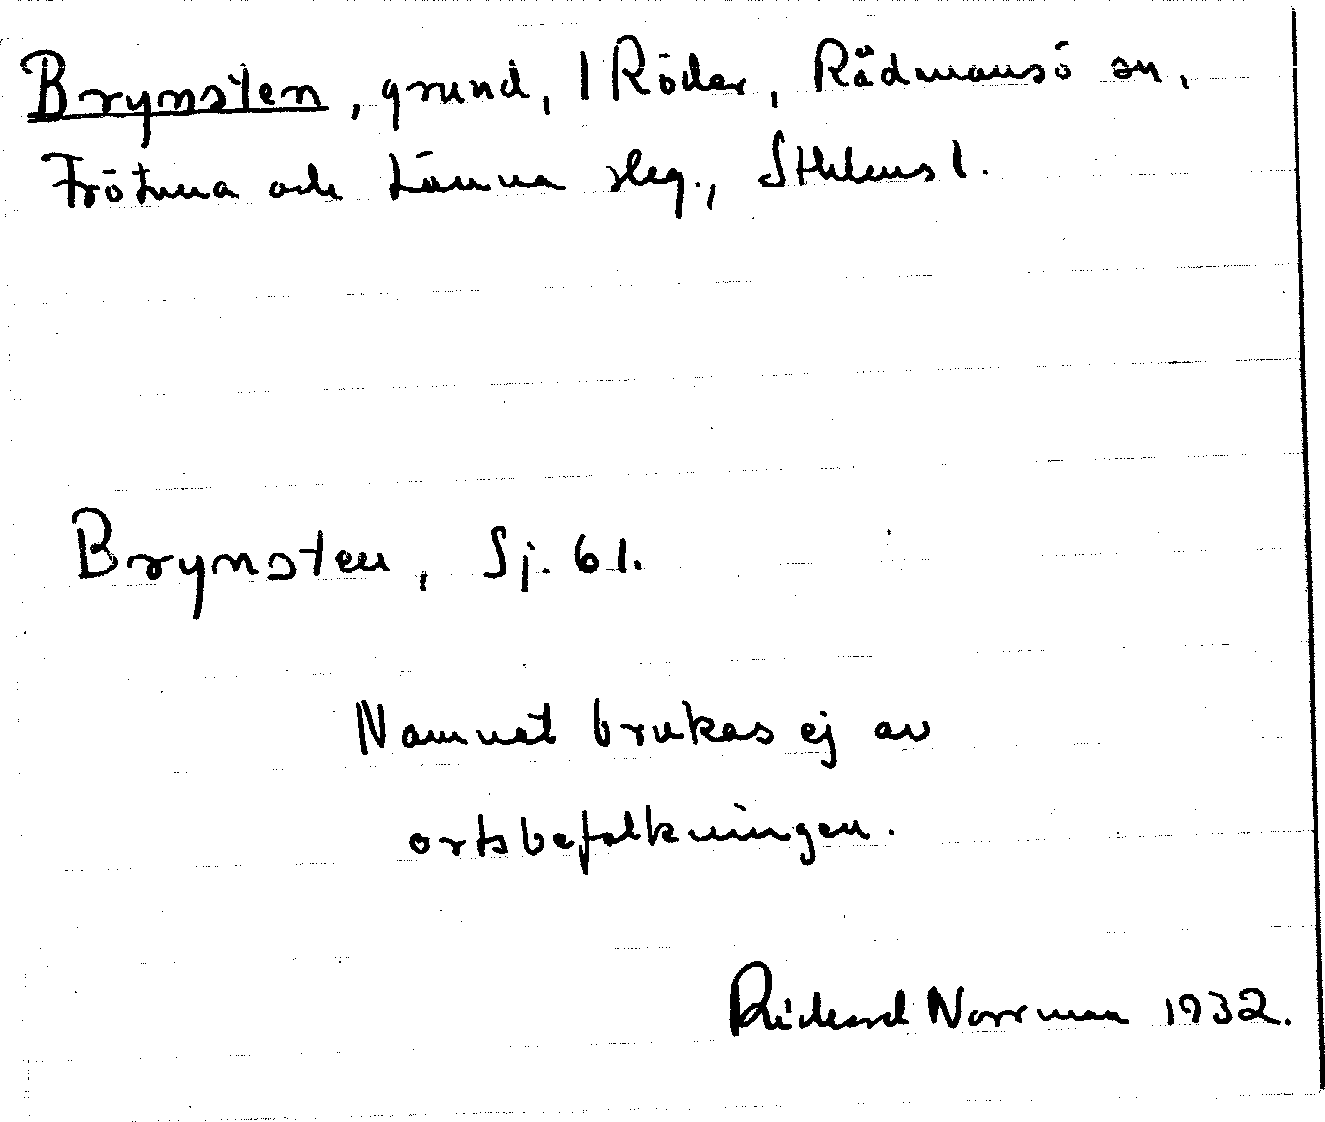 Brynsten, grund, I Röder, Rådmansö sn,
Frötuna och Länna slg., Sthlms l.
Brynsten, Sj. 61.
Namnet brukas ej av
ortsbefolkningen.
Rickard Norrman 1932.